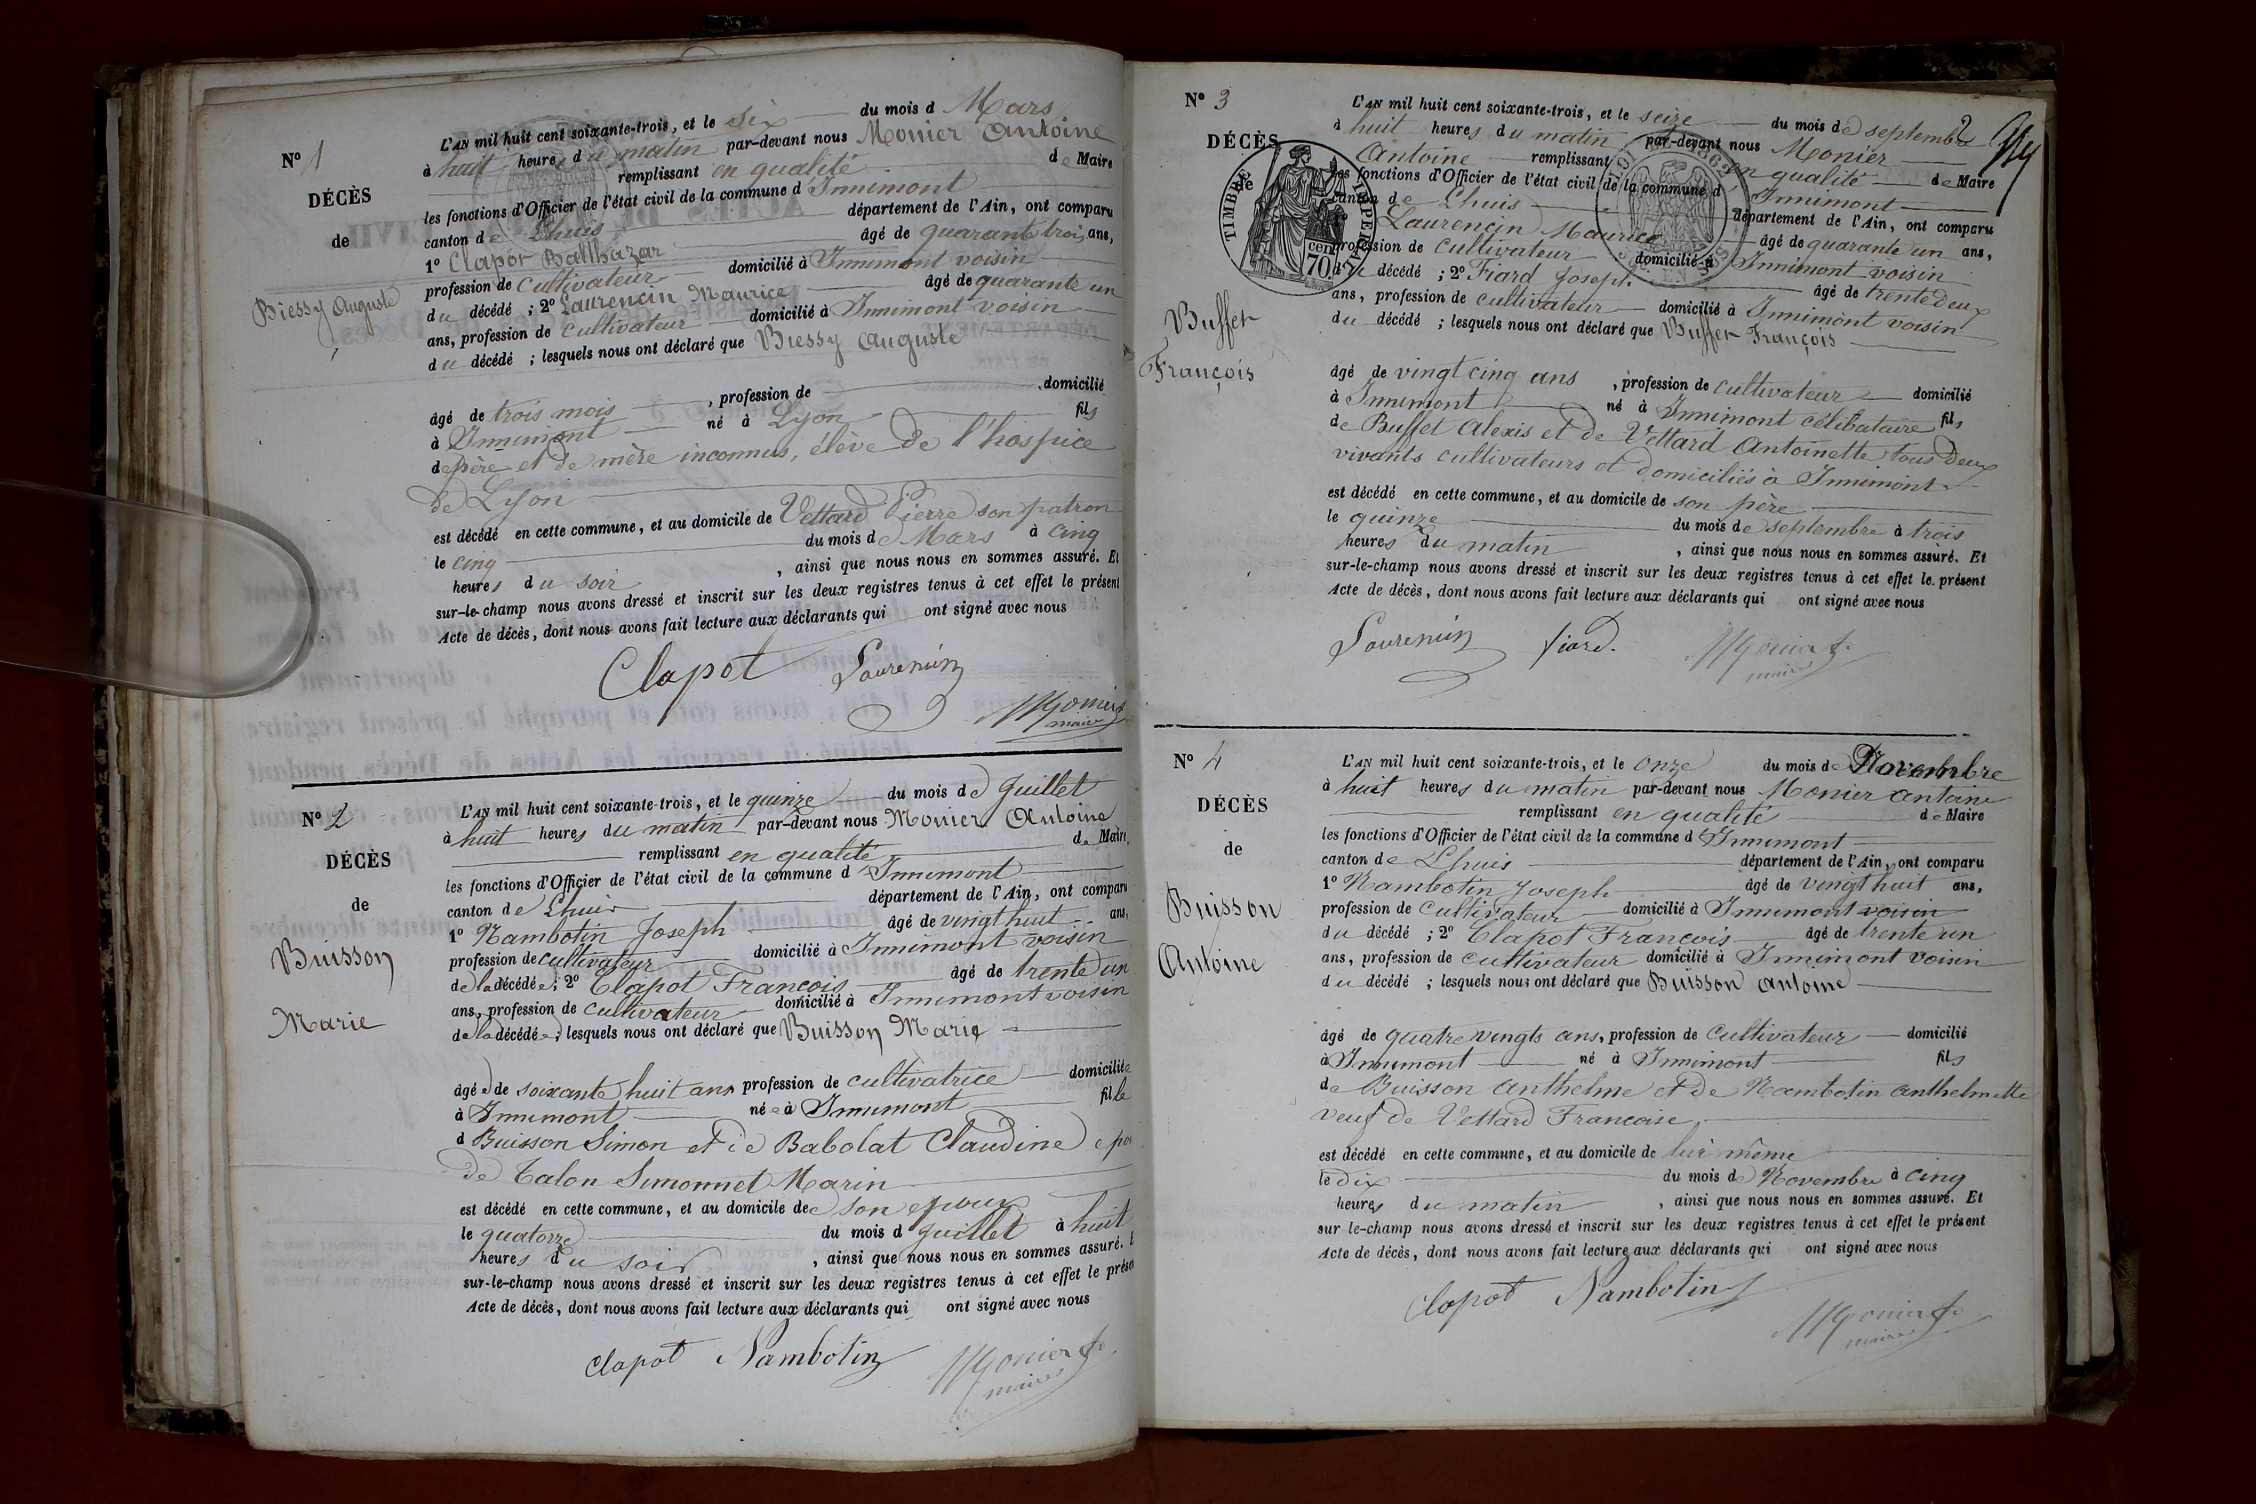 Nº 1
DÉCÈS
de
Biessy Auguste
L'AN mil huit cent soixante-trois, et le six du mois d Mars
à huit heures du matin par-devant nous Monier Antoine
remplissant en qualité de Maire
les fonctions d'Officier de l'état civil de la commune d Innimont
canton de Lhuis département de l'Ain, ont comparu
1º Clapot Balthazar âgé de quarante trois ans,
profession de cultivateur domicilié à Innimont voisin
du décédé ; 2º Laurencin Maurice âgé de quarante un
ans, profession de cultivateur domicilié à Innimont voisin
du décédé ; lesquels nous ont déclaré que Biessy Auguste
âgé de trois mois , profession de domicilié
à Innimont né à Lyon fils
de père et de mère inconnus, élève de l'hospice
de Lyon
est décédé en cette commune, et au domicile de Vettard Pierre son patron
le cinq du mois de Mars à cinq
heures du soir , ainsi que nous nous en sommes assuré. Et
sur-le-champ nous avons dressé et inscrit sur les deux registres tenus à cet effet le présent
Acte de décès, dont nous avons fait lecture aux déclarants qui ont signé avec nous
Clapot Laurencin
Monier
maire
Nº 2
DÉCÈS
de
Buisson
Marie
L'AN mil huit cent soixante-trois, et le quinze du mois de Juillet
à huit heures du matin par-devant nous Monier Antoine
remplissant en qualité de Maire,
les fonctions d'Officier de l'état civil de la commune d Innimont
canton de Lhuis département de l'Ain, ont comparu
1º Nambotin Joseph âgé de vingt huit ans,
profession de cultivateur domicilié à Innimont voisin
de la décédée ; 2º Clapot François âgé de trente un
ans, profession de cultivateur domicilié à Innimont voisin
de la décédée ; lesquels nous ont déclaré que Buisson Marie
âgée de soixante huit ans profession de cultivatrice domiciliée
à Innimont née à Innimont fille
d Buisson Simon et de Babolat Claudine epou
de Talon Simonnet Marin
est décédé en cette commune, et au domicile de son epoux
le quatorze du mois d Juillet à huit
heures du soir , ainsi que nous nous en sommes assuré. E
sur-le-champ nous avons dressé et inscrit sur les deux registres tenus à cet effet le prése
Acte de décès, dont nous avons fait lecture aux déclarants qui ont signé avec nous
Clapot Nambotin Monier
maire
Nº 3
DÉCÈS
de
Buffet
François
TIMBRE IMPERIAL
70 cen
2
L'AN mil huit cent soixante-trois, et le seize du mois de septembre
à huit heures du matin par-devant nous Monier
Antoine remplissant en qualité de Maire
les fonctions d'Officier de l'état civil de la commune d Innimont
canton de Lhuis département de l'Ain, ont comparu
1º Laurencin Maurice âgé de quarante un ans,
profession de cultivateur domicilié à Innimont voisin
du décédé ; 2º Fiard Joseph âgé de trente deux
ans, profession de cultivateur domicilié à Innimont voisin
du décédé ; lesquels nous ont déclaré que Buffet François
âgé de vingt cinq ans , profession de cultivateur domicilié
à Innimont né à Innimont célibataire fils
de Buffet Alexis et de Vettard Antoinette tous deux
vivants cultivateurs et domiciliés à Innimont
est décédé en cette commune, et au domicile de son père
le quinze du mois de septembre à trois
heures du matin , ainsi que nous nous en sommes assuré. Et
sur-le-champ nous avons dressé et inscrit sur les deux registres tenus à cet effet le présent
Acte de décès, dont nous avons fait lecture aux déclarants qui ont signé avec nous
Laurencin fiard. Monier
maire
Nº 4
DÉCÈS
de
Buisson
Antoine
L'AN mil huit cent soixante-trois, et le onze du mois de Novembre
à huit heures du matin par-devant nous Monier Antoine
remplissant en qualité de Maire
les fonctions d'Officier de l'état civil de la commune d Innimont
canton de Lhuis département de l'Ain, ont comparu
1º Nambotin Joseph âgé de vingt huit ans,
profession de cultivateur domicilié à Innimont voisin
du décédé ; 2º Clapot François âgé de trente un
ans, profession de cultivateur domicilié à Innimont voisin
du décédé ; lesquels nous ont déclaré que Buisson Antoine
âgé de quatre vingts ans, profession de cultivateur domicilié
à Innimont né à Innimont fils
de Buisson Anthelme et de Nambotin Anthelmette
veuf de Vettard Francoise
est décédé en cette commune, et au domicile de lui même
le dix du mois de Novembre à cinq
heures du matin , ainsi que nous nous en sommes assuré. Et
sur le-champ nous avons dressé et inscrit sur les deux registres tenus à cet effet le présent
Acte de décès, dont nous avons fait lecture aux déclarants qui ont signé avec nous
Clapot Nambotin Monier
maire